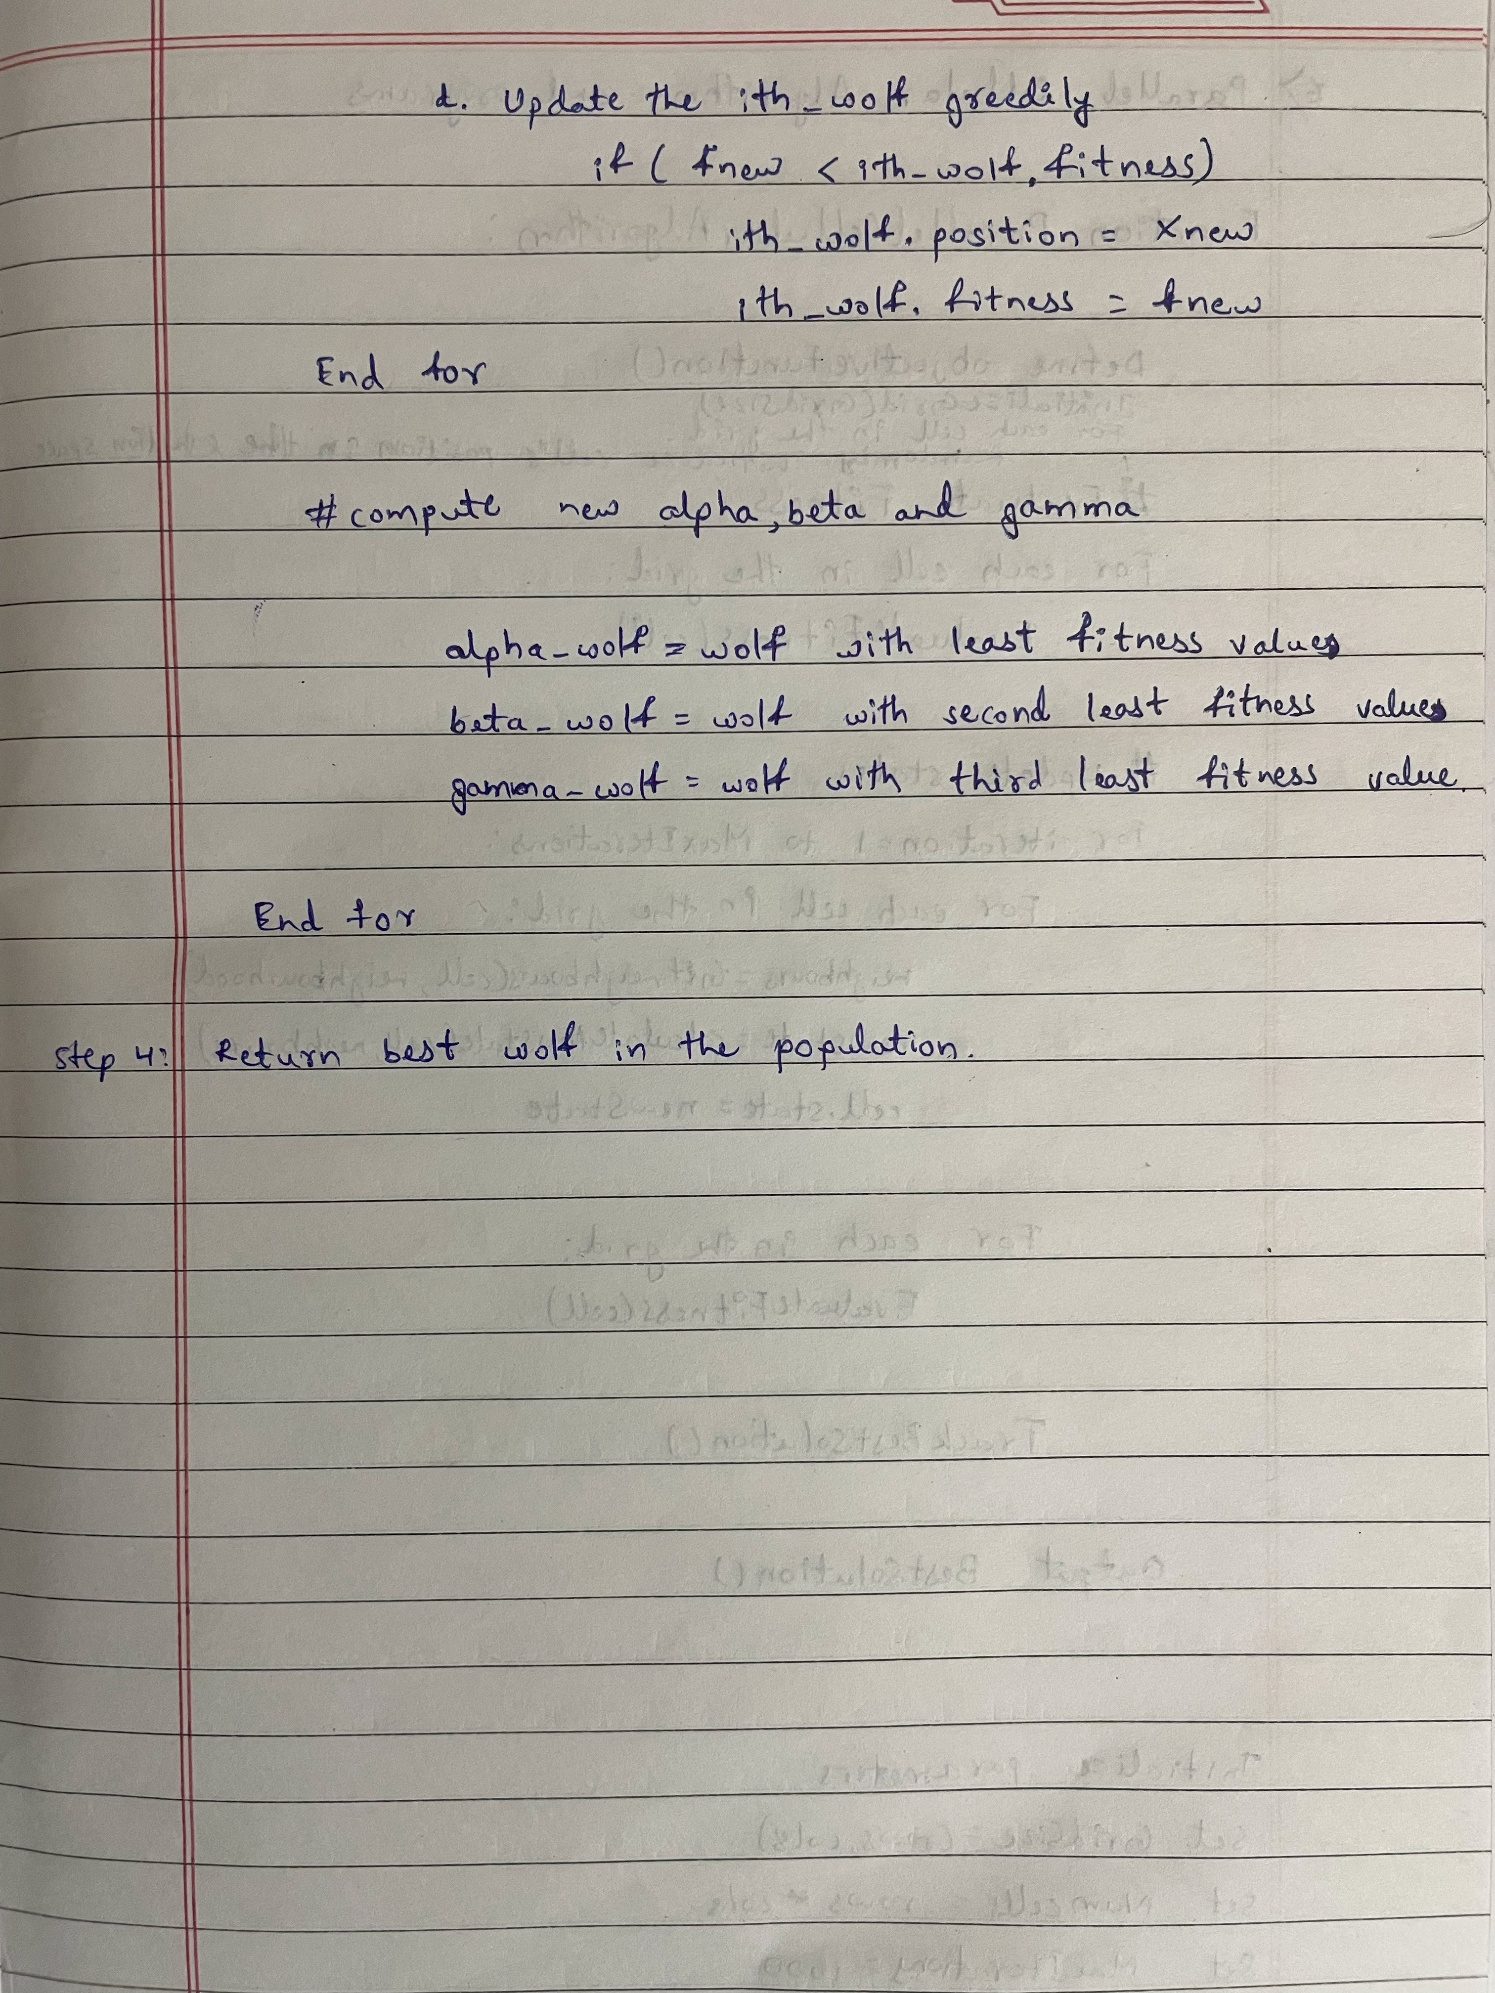 d. Update the ith_wolf greedily
if ( fnew < ith_wolf. fitness)
ith_wolf. position = Xnew
ith_wolf. fitness = fnew
End for
# compute new alpha, beta and gamma
alpha_wolf = wolf with least fitness values
beta_wolf = wolf with second least fitness values
gamma_wolf = wolf with third least fitness value.
End for
Step 4: Return best wolf in the population.